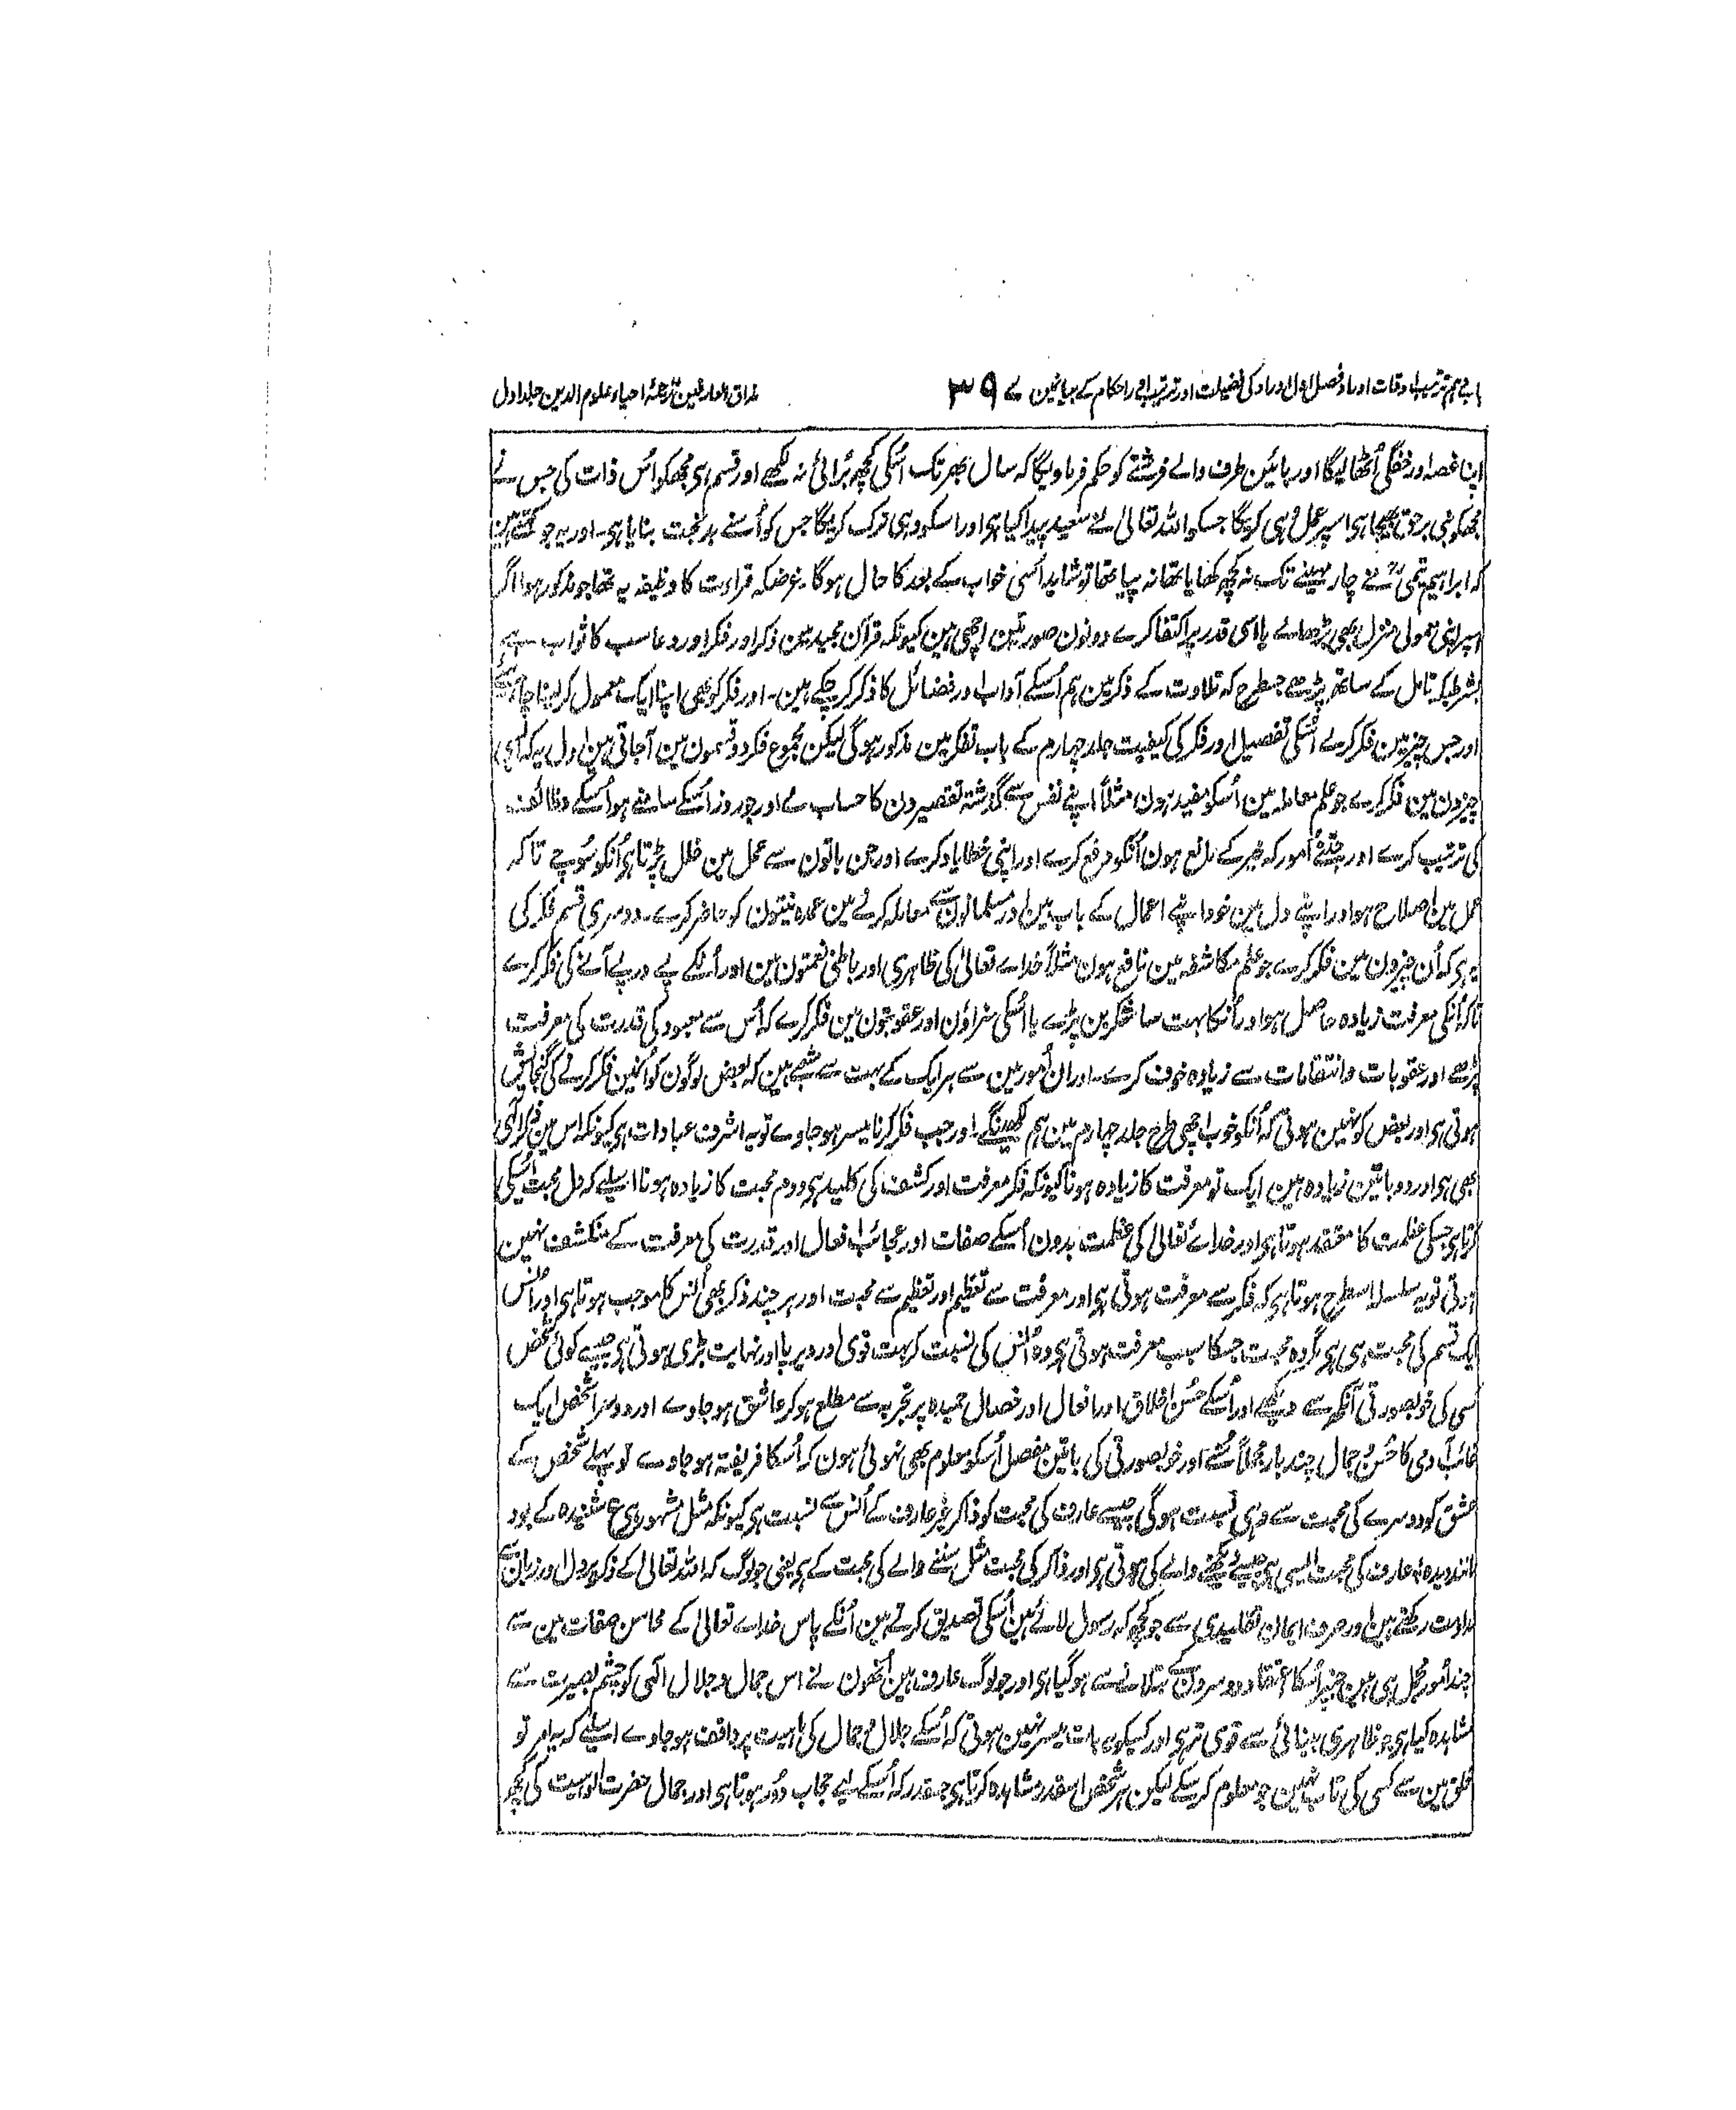 باب دہم ترتیب اوقات اوراد فصل اول اوراد کی فضیلت اور ترتیب اور احکام کے بیان مین ۷۳۹ مذاق العارفین ترجمۂ احیاء علوم الدین جلد اول
اپنا غصہ اور خفگی اُٹھا لیگا اور بائین طرف والے فرشتے کو حکم فرماویگا کہ سال بھر تک اُسکی کچھ بُرائی نہ لکھے اور قسم ہی مجھکو اُس ذات کی جس نے
مجھکو نبی برحق بھیجا ہی اسپر عمل وہی کریگا جسکو اللہ تعالیٰ نے سعید پیدا کیا ہی اور اسکو وہی ترک کریگا جس کو اُسنے بدبخت بنایا ہی۔ اور یہ جو کہتے ہین
کہ ابراہیم تیمی رح نے چار مہینے تک نہ کچھ کھایا تھا نہ پیا تھا تو شاید اُسی خواب کے بعد کا حال ہوگا۔ غرضکہ قراءت کا وظیفہ یہ تھا جو مذکور ہوا اگر
اسپر اپنی معمولی منزل بھی پڑھا لے یا اسی قدر پر اکتفا کرے دونون صورتین اچھی ہین کیونکہ قرآن مجید مین ذکر اور فکر اور دعا سب کا ثواب ہے
بشرطیکہ تامل کے ساتھ پڑھے جسطرح کہ تلاوت کے ذکر مین ہم اُسکے آداب اور فضائل کا ذکر کر چکے ہین۔ اور فکر کو بھی اپنا ایک معمول کر لینا چاہیئے
اور جس چیز مین فکر کرے اُسکی تفصیل اور فکر کی کیفیت جلد چہارم کے باب تفکر مین مذکور ہوگی لیکن مجموع فکر دو قسمون مین آجاتی ہین اول یہ کہ ایسی
چیزون مین فکر کرے جو علم معاملہ مین اُسکو مفید ہون مثلاً اپنے نفس سے گذشتہ تقصیرون کا حساب لے اور جو روز اُسکے سامنے ہو اُسکے وظائف
کی ترتیب کرے اور جتنے اُمور کہ خیر کے مانع ہون اُنکو دفع کرے اور اپنی خطا یاد کرے اور جن باتون سے عمل مین خلل پڑتا ہی اُنکو سُوچے تاکہ
عمل مین اصلاح ہو اور اپنے دل مین خود اپنے اعمال کے باب مین اور مسلمانون سے معاملہ کرنے مین عمدہ نیتون کو حاضر کرے۔ دوسری قسم فکر کی
یہ ہی کہ اُن چیزون مین فکر کرے جو علم مکاشفہ مین نافع ہون مثلاً خداے تعالیٰ کی ظاہری اور باطنی نعمتون مین اور اُنکے پے درپے آنے کی فکر کرے
تاکہ اُنکی معرفت زیادہ حاصل ہو اور اُنکا بہت سا شکر بن پڑے یا اُسکی سزاؤن اور عقوبتون مین فکر کرے کہ اُس سے معبود کی قدرت کی معرفت
بڑھے اور عقوبات و انتقامات سے زیادہ خوف کرے۔ اور ان اُمور مین سے ہر ایک کے بہت سے شعبے ہین کہ بعض لوگون کو اُنمین فکر کرنے کی گنجایش
ہوتی ہی اور بعض کو نہین ہوتی کہ اُنکو خوب اچھی طرح جلد چہارم مین ہم لکھینگے۔ اور جب فکر کرنا میسر ہو جاوے تو یہ اشرف عبادات ہی کیونکہ اس مین ذکر الٰہی
بھی ہی اور دو باتین زیادہ ہین ایک تو معرفت کا زیادہ ہونا کیونکہ فکر معرفت اور کشف کی کلید ہی دوم محبت کا زیادہ ہونا اسلیے کہ دل محبت اُسیکی
کرتا ہی جسکی عظمت کا معتقد ہوتا ہی اور خداے تعالیٰ کی عظمت بدون اُسکے صفات اور عجائب افعال اور قدرت کی معرفت کے منکشف نہین
ہوتی تو یہ سلسلہ اسطرح ہوتا ہی کہ فکر سے معرفت ہوتی ہی اور معرفت سے تعظیم اور تعظیم سے محبت اور ہر چند ذکر بھی اُنس کا موجب ہوتا ہی اور اُنس
ایک قسم کی محبت ہی ہی مگر وہ محبت جسکا سبب معرفت ہوتی ہی وہ اُنس کی نسبت کر بہت قوی اور دیرپا اور نہایت بڑی ہوتی ہی جیسے کوئی شخص
کسی کی خوبصورتی آنکھ سے دیکھے اور اُسکے حُسن اخلاق اور افعال اور خصال حمیدہ پر تجربہ سے مطلع ہو کر عاشق ہو جاوے اور دوسرا شخص ایک
غائب آدمی کا حُسن و جمال چند بار مجملاً سُنے اور خوبصورتی کی باتین مفصل اُسکو معلوم بھی نہوئی ہون کہ اُسکا فریفتہ ہو جاوے تو پہلے شخص کے
عشق کو دوسرے کی محبت سے وہی نسبت ہوگی جیسے عارف کی محبت کو ذاکر غیر عارف کے اُنس سے نسبت ہی کیونکہ مثل مشہور ہی ع شنیدہ کے بود
مانند دیدہ * عارف کی محبت ایسی ہی جیسے دیکھنے والے کی ہوتی ہی اور ذاکر کی محبت مثل سننے والے کی محبت کے ہی یعنی جو لوگ کہ اللہ تعالیٰ کے ذکر پر دل اور زبان سے
مداومت رکھتے ہین اور صرف ایمان تقلیدی سے جو کچھ کہ رسول لائے ہین اُسکی تصدیق کرتے ہین اُنکے پاس خداے تعالیٰ کے محاسن صفات مین سے
چند اُمور مجمل ہی ہین جنپر اُنکا اعتقاد دوسرون کے بتلانے سے ہو گیا ہی اور جو لوگ عارف ہین اُنھون نے اس جمال و جلال الٰہی کو چشم بصیرت سے
مشاہدہ کیا ہی جو ظاہری بینائی سے قوی تر ہی اور کسیکو یہ بات میسر نہین ہوتی کہ اُسکے جلال و جمال کی ماہیت پر واقف ہو جاوے اسلیے کہ یہ امر تو
خلق مین سے کسی کی تاب نہین جو معلوم کر سکے لیکن ہر شخص اسقدر مشاہدہ کرتا ہی جسقدر کہ اُسکے لیے حجاب دُور ہوتا ہی اور جمال حضرت الوہیت کی کچھ